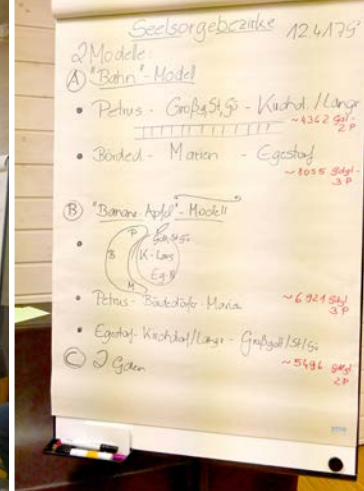 Seelsorgebezirke
2 Modelle:
Ⓐ "Bahn"-Modell
• Petrus - Großg, St, Gö - Kirchd./Lange
~4362 Gdgl-
2P
• Börded - Marien - Egestorf
~8055 Gdgl-
3P
Ⓑ "Banane-Apfel"-Modell
P
B
K-Lang
Eg-N
M
• Petrus - Bördedörfer - Marien
~6921 Gdgl
3P
• Egestorf - Kirchdorf/Lange - Großgolt/St/Gö
~5496 Gdgl-
2P
Ⓒ